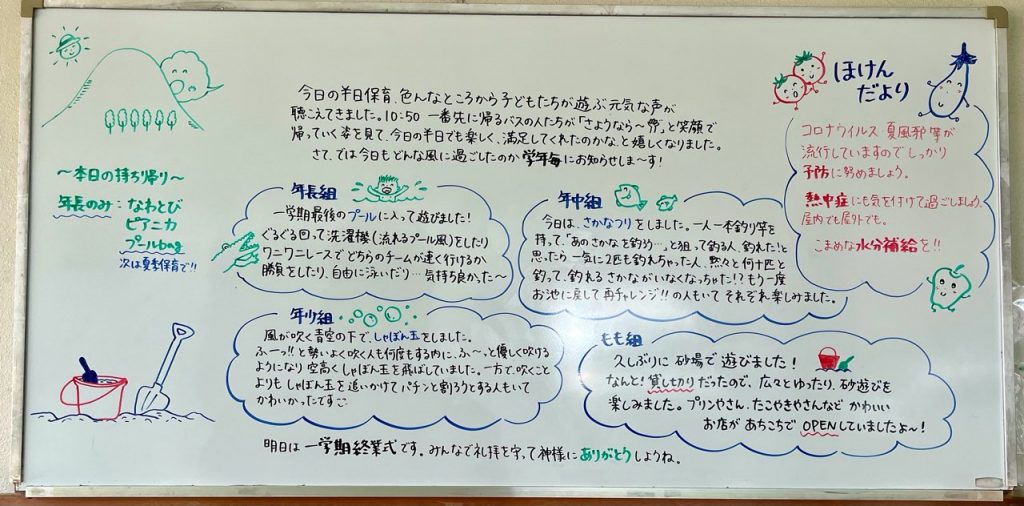 今日の半日保育、色んなところから子どもたちが遊ぶ元気な声が
聴こえてきました。10:50 一番先に帰るバスの人たちが「さようなら〜」と笑顔で
帰っていく姿を見て、今日の半日でも楽しく、満足してくれたのかな、と嬉しくなりました。
さて、では今日もどんな風に過ごしたのか学年毎にお知らせしま〜す!
〜本日の持ち帰り〜
年長のみ:なわとび
ピアニカ
プールbag
次は夏季保育で!!
年長組
一学期最後のプールに入って遊びました!
ぐるぐる回って洗濯機(流れるプール風)をしたり
ワニワニレースでどちらのチームが速く行けるか
勝負をしたり、自由に泳いだり…気持ち良かった〜
年中組
今日は、さかなつりをしました。一人一本釣り竿を
持って、「あのさかなを釣ろう…」と狙って釣る人、釣れた!と
思ったら一気に2匹も釣れちゃった人、黙々と何十匹と
釣って、釣れるさかながいなくなっちゃた!?もう一度
お池に戻して再チャレンジ!!の人もいてそれぞれ楽しみました。
年少組
風が吹く青空の下で、しゃぼん玉をしました。
ふーっ!!と勢いよく吹く人も何度もする内に、ふ〜っと優しく吹ける
ようになり空高くしゃぼん玉を飛ばしていました。一方で、吹くこと
よりもしゃぼん玉を追いかけてパチンと割ろうとする人もいて
かわいかったです
もも組
久しぶりに砂場で遊びました!
なんと!貸し切りだったので、広々とゆったり、砂遊びを
楽しみました。プリンやさん、たこやきやさんなどかわいい
お店があちこちでOPENしていましたよ〜!
ほけん
だより
コロナウイルス 夏風邪等が
流行していますのでしっかり
予防に努めましょう。
熱中症にも気を付けて過ごしましょう。
屋内でも屋外でも。
こまめな水分補給を!!
明日は一学期終業式です。みんなで礼拝を守って神様にありがとうしようね。